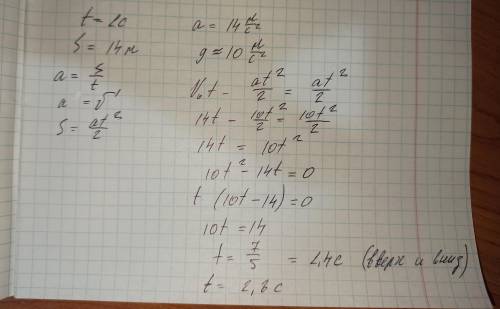 t = 2c
S = 14м
a = S/t
a = v'
S = at²/2
a = 14 м/c²
g ≈ 10 м/c²
V₀t - at²/2 = at²/2
14t - 10t²/2 = 10t²/2
14t = 10t²
10t² - 14t = 0
t (10t - 14) = 0
10t = 14
t = 7/5 = 1,4c (вверх и вниз)
t = 2,8c